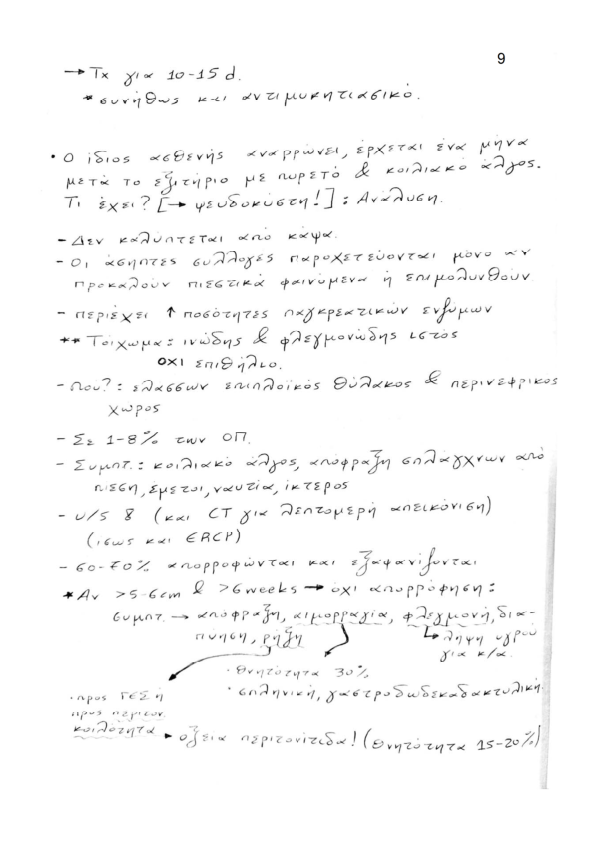 9
→ Tx για 10-15 d.
* συνήθως και αντιμυκητιασικό.
• Ο ίδιος ασθενής αναρρώνει, έρχεται ένα μήνα
μετά το εξιτήριο με πυρετό & κοιλιακό άλγος.
Τι έχει? [→ ψευδοκύστη!] : Ανάλυση.
- Δεν καλύπτεται από κάψα.
- Οι άσηπτες συλλογές παροχετεύονται μόνο αν
προκαλούν πιεστικά φαινόμενα ή επιμολυνθούν
- περιέχει ↑ ποσότητες παγκρεατικών ενζύμων
** Τοίχωμα: ινώδης & φλεγμονώδης ιστός
ΟΧΙ επιθήλιο.
- Που?: ελάσσων επιπλοϊκός θύλακος & περινεφρικος
χώρος
- Σε 1-8% των ΟΠ.
- Συμπτ.: κοιλιακό άλγος, απόφραξη σπλάγχνων από
πιεση, έμετοι, ναυτία, ίκτερος
- U/S & (και CT για λεπτομερή απεικόνιση)
(ισως και ERCP)
- 60-70% απορροφώνται και εξαφανίζονται
* Αν >5-6cm & >6weeks → όχι απορρόφηση:
συμπτ. → απόφραξη, αιμορραγία, φλεγμονή, δια-
πύηση, ρήξη
↳ ληψη υγρού
για κ/α.
· θνητότητα 30%
· σπληνική, γαστροδωδεκαδακτυλική.
· προς ΓΕΣ ή
προς περιτον.
κοιλότητα ▸ οξεια περιτονίτιδα! (θνητότητα 15-20%)